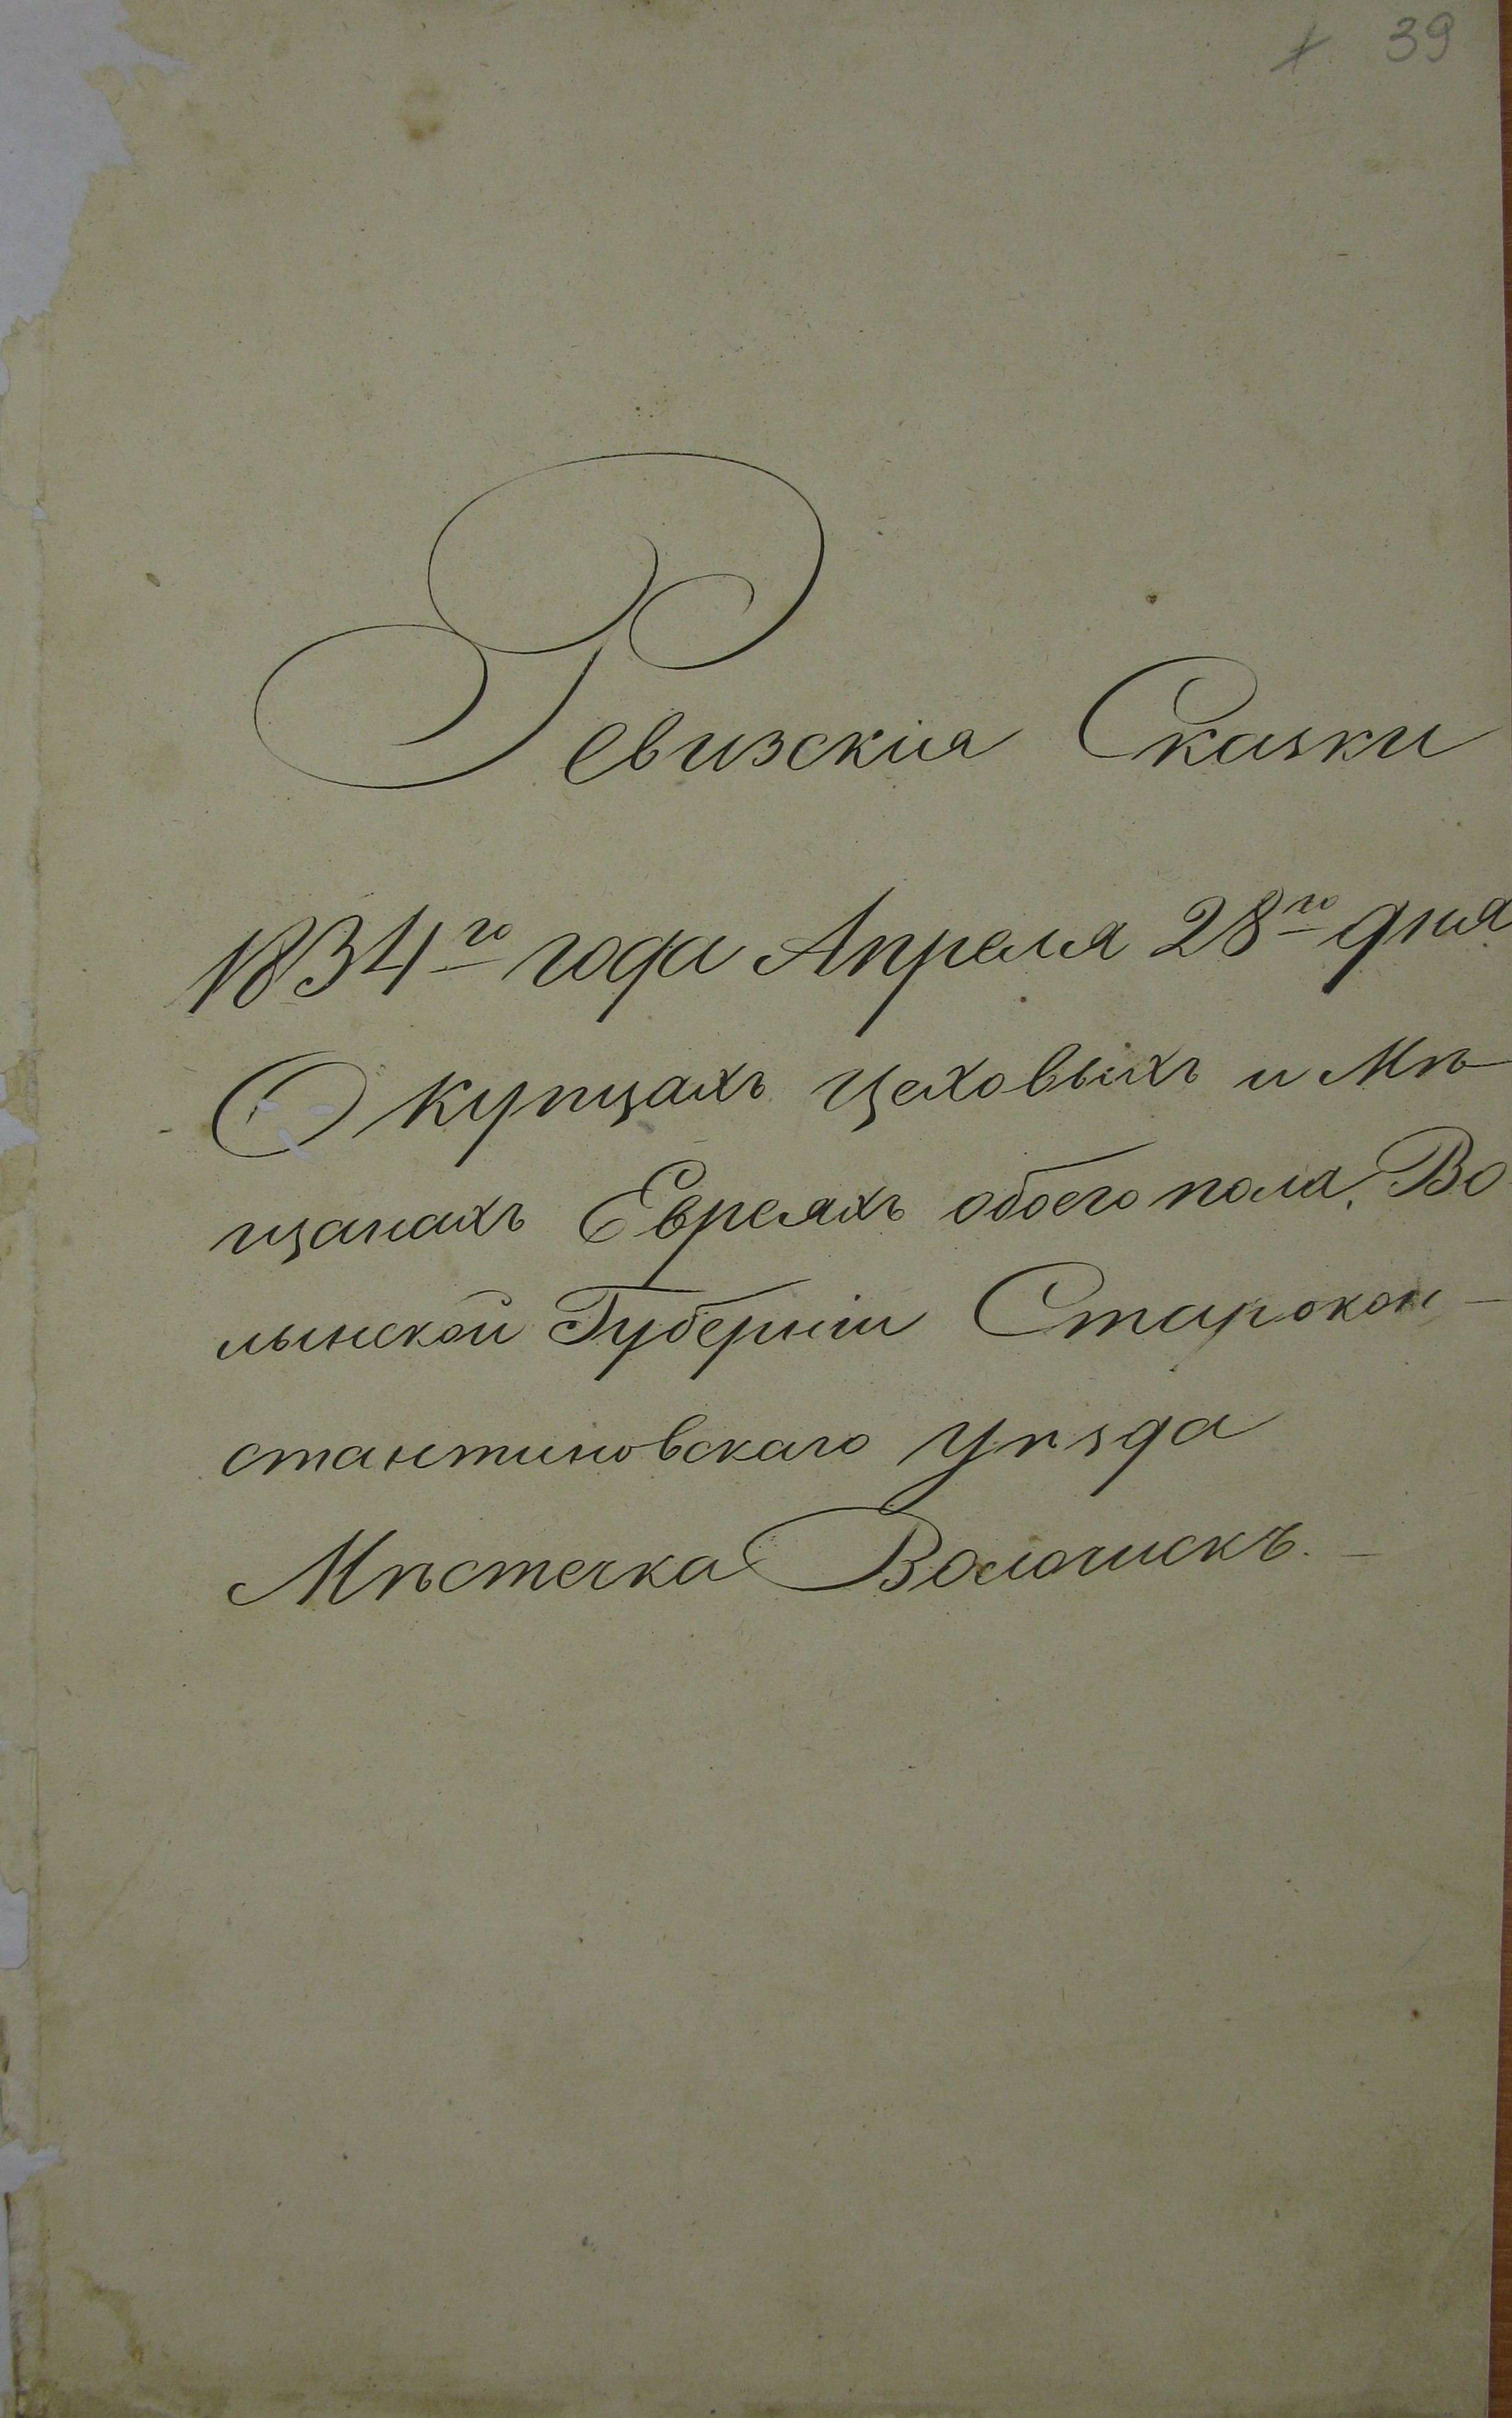 39
Ревизскія Сказки
1834го года Апреля 28го дня
О купцахъ цеховыхъ и Мѣ
щанахъ Евреяхъ обоего пола, Во
лынской Губерніи Старокон-
стантиновскаго уѣзда
Мѣстечка Волочискъ.-